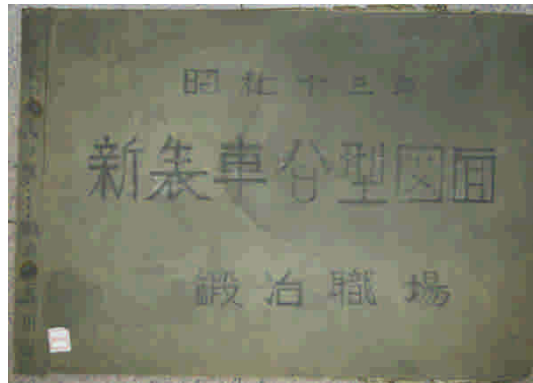 昭和十三年
新表車台型図面
鍛冶職場